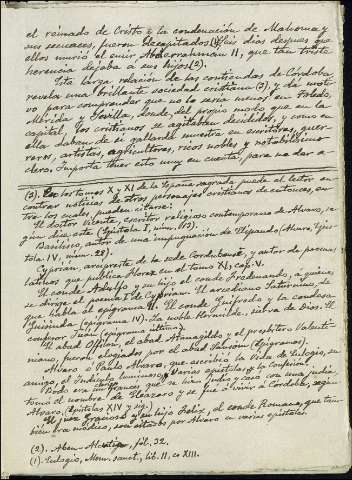 el reinado de Cristo y la condenación de Mahoma y
sus secuaces, fueron decapitados (1). Seis días después que
ellos murió el emir Abderrahman II, que tan triste
herencia dejaba á sus hijos (2).
Esta larga relación de los confesores de Córdoba
revela una brillante sociedad cristiana (3), y da motivo
para comprender que no lo sería menos en Toledo,
Mérida y Sevilla, donde, del propio modo que en la
capital, los cristianos se agitaban decididos, y como en
ella daban de sí gallarda muestra en escritores, guerreros,
artistas, agricultores, ricos nobles y notabilísimo
clero. Importa tener esto muy en cuenta, para no dar a-
(3). En los tomos X y XI de la España sagrada puede el lector encontrar
noticias de otros personajes cristianos de entonces, entre
los cuales pueden citarse:
El doctor Vicente, escritor religioso contemporaneo de Alvaro, según
dice este (Epístola I, núm.
Basilisco, autor de una impugnación de Elipando (Alvaro, Epístola
IV, núm. 28).
Cyprian, arcipreste de la sede Cordubense, y autor de poemas
latinos que publica Florez en el tomo XI, cap. V.
El conde Adolfo y su hijo el conde Fredenando, á quienes
se dirige el poema I de Cyprian. El arcediano Saturnino, de
que habla el epigrama II. El conde Guifredo y la condesa
Guisinda (epigrama IV). La noble Hermilde, sierva de Dios. El
confesor Juan (epigrama último).
El abad Offilon, el abad Atanagildo y el presbítero Valentiniano,
fueron elogiados por el abad Samson (Epigramas).
Alvaro ó Paulo Alvaro, que escribió la Vida de Eulogio, su
amigo, el Indiculo luminoso, varias epístolas y la Confesión.
Bodo era francés que se hizo judío y casó con una judía
tomó el nombre de Eleazaro y se fué á vivir á Córdoba, según
Alvaro (Epístolas XIV y sig.)
y su hijo Felix, el conde Romano, que también
era médico, son citados por Alvaro en varias epístolas.
(2). Aben- fol. 32.
(1). Eulogio, Mem. sanct., lib. II, c. XIII.